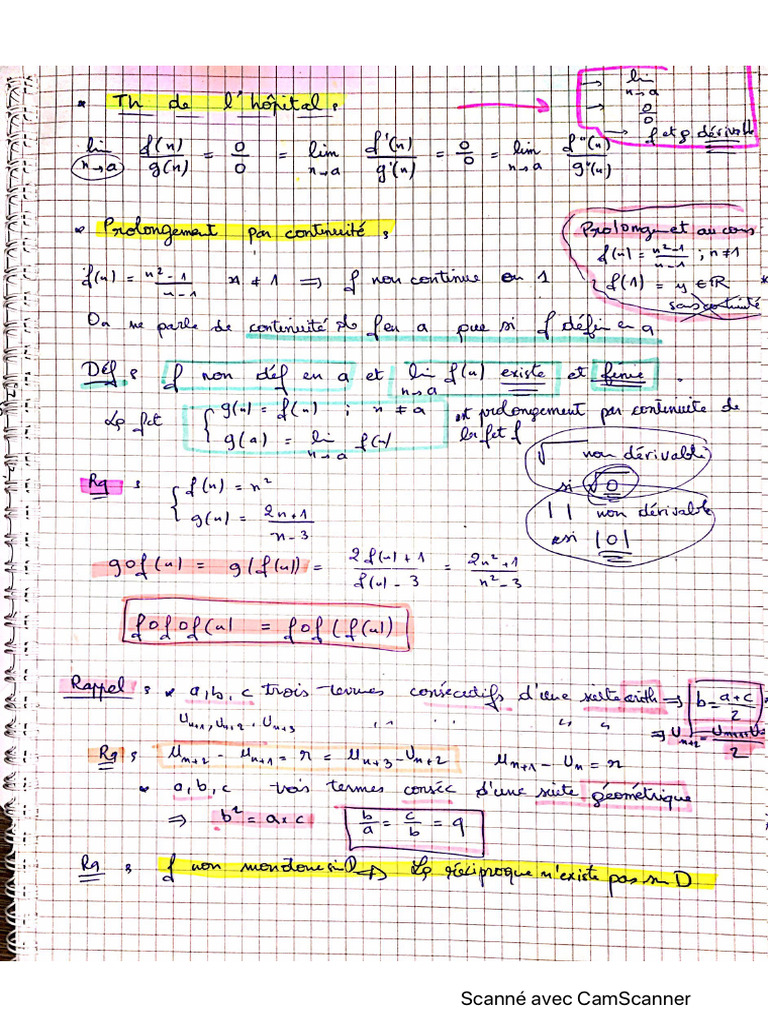 * Th de l'hôpital :
→ lim n→a
→ 0/0
→ f et g dérivable
lim n→a f(n)/g(n) = 0/0 = lim n→a f'(n)/g'(n) = 0/0 = lim n→a f''(n)/g''(n)
* Prolongement par continuité :
Prolongement au cours
f(n) = n²-1/n-1 ; n≠1
f(1) = y ∈ ℝ
sans continuité
f(n) = n²-1/n-1 n ≠ 1 ⟹ f non continue en 1
On ne parle de continuité de f en a que si f défini en a
Déf : f non déf en a et lim n→a f(n) existe et finie.
La fct { g(n) = f(n) ; n ≠ a
g(a) = lim n→a f(n)
est prolongement par continuité de la fct f
√ non dérivable
si √0
| | non dérivable
si |0|
Rq : { f(n) = n²
g(n) = 2n+1/n-3
gof(n) = g(f(n)) = 2f(n)+1/f(n)-3 = 2n²+1/n²-3
fofof(n) = fof(f(n))
Rappel : * a, b, c trois termes consécutifs d'une suite arith ⟹ b = a+c/2
Un+1, Un+2, Un+3 " " " " "
Rq : Un+2 - Un+1 = r = Un+3 - Un+2 Un+1 - Un = r
* a, b, c trois termes conséc d'une suite géométrique
⟹ b² = a×c b/a = c/b = q
Rq : f non monotone sur D ⟹ La réciproque n'existe pas sur D
Scanné avec CamScanner